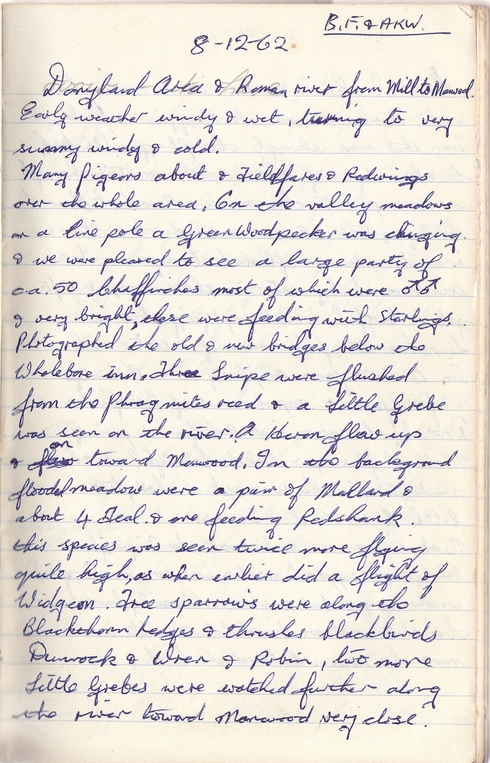 B.F. & AKW.
8-12-62.
Donyland Area & Roman river from Mill to Manwood.
Early weather windy & wet, turning to very
sunny windy & cold.
Many Pigeons about & Fieldfares & Redwings
over the whole area. On the valley meadows
on a line pole a Green Woodpecker was clinging.
& we were pleased to see a large party of
ca. 50 Chaffinches most of which were ♂♂
& very bright, these were feeding with Starlings.
Photographed the old & new bridges below the
Whalebone inn. Three Snipe were flushed
from the Phragmites reed & a Little Grebe
was seen on the river. A Heron flew up
& on toward Manwood. In the background
flooded meadow were a pair of Mallard &
about 4 Teal. & one feeding Redshank.
this species was seen twice more flying
quite high, as when earlier did a flight of
Widgeon. Tree sparrows were along the
Blackthorn hedges & thrushes blackbirds
Dunnock & Wren & Robin, two more
Little Grebes were watched further along
the river toward Manwood very close.